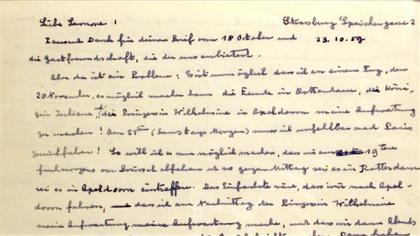 Liebe Leonore ! Strassburg Speichergasse 2
Tausend Dank für deinen Brief vom 18 Oktober und 23.10.59
die Gastfreundschaft, die du uns anbietest.
Aber da ist ein Problem: Es ist unmöglich dass ich an einem Tag, den
20 November, es möglich machen kann die Freunde in Rotterdam, die Köni-
gin Juliana & die Prinzessin Wilhelmina in Apeldoorn meine Aufwartung
zu machen! Am 21ten (Samstag Morgen) muss ich unfehlbar nach Paris
zurückfahren! So will ich es nun möglich machen, dass wir am 19ten
frühmorgens von Brüssel abfahren
sei es in Apeldoorn eintreffen. Das Einfachste wäre, dass wir nach Apel-
doorn fahren, und dass ich am Nachmittag der Prinzess Wilhelmina
meine Aufwartung meine Aufwartung mache, und dass wir dann Abends